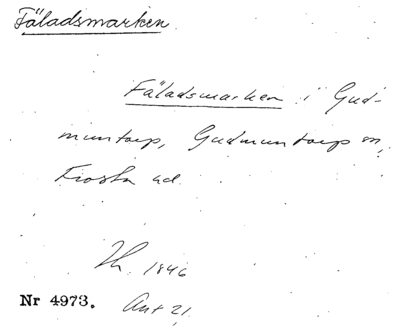 Fäladsmarken
Fäladsmarken i Gud-
muntorp, Gudmuntorp sn,
Frosta hd.
1846
Nr 4973. Akt 21.